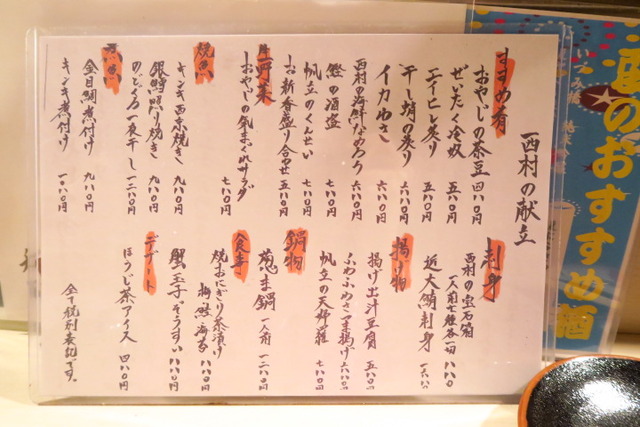 西村の献立
すすめ肴
おやじの茶豆 四八〇円
ぜいたく冷奴 五八〇円
エイヒレ炙り 五八〇円
干し蛸の炙り 六八〇円
イカわさ 六八〇円
西村の海鮮なめろう 六八〇円
鰹の酒盗 七八〇円
帆立のくんせい 七八〇円
お新香盛り合わせ 五八〇円
野菜
おやじの気まぐれサラダ 七八〇円
焼魚
キンキ西京焼き 九八〇円
銀鱈照り焼き 九八〇円
のどぐろ一夜干し 一二八〇円
煮魚
金目鯛煮付け 九八〇円
キンキ煮付け 一〇八〇円
刺身
西村の宝石箱
一人前 一切 一八八〇
近大鮪刺身 一六八〇
揚げ物
揚げ出汁豆腐 五八〇円
ふわふわさつま揚げ 六八〇円
帆立の天婦羅 七八〇円
鍋物
葱ま鍋 一人前 一二八〇円
食事
焼おにぎり茶漬け
梅 鮭 海苔 八八〇円
蟹玉子ぞうすい 八八〇円
デザート
ほうじ茶アイス 四八〇円
全て税別表記です。
酒のおすすめ